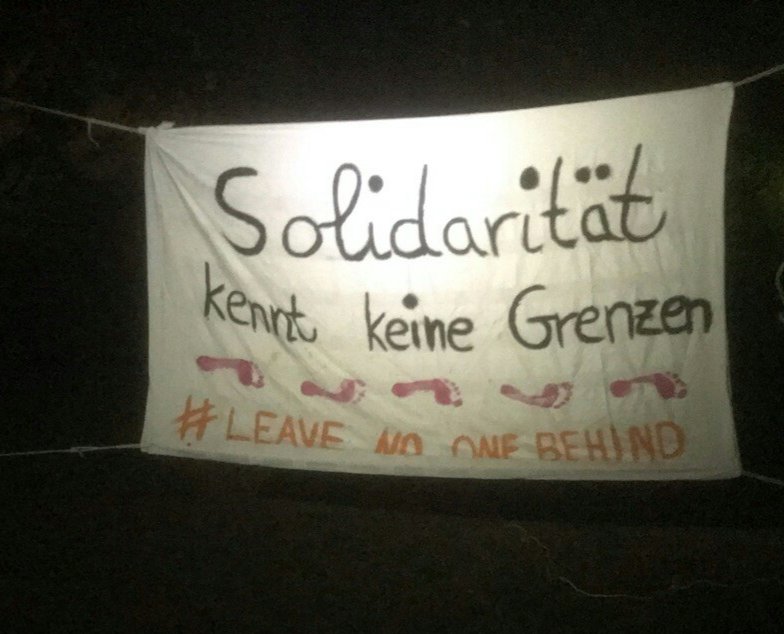 Solidarität
kennt keine Grenzen
#LEAVE NO ONE BEHIND